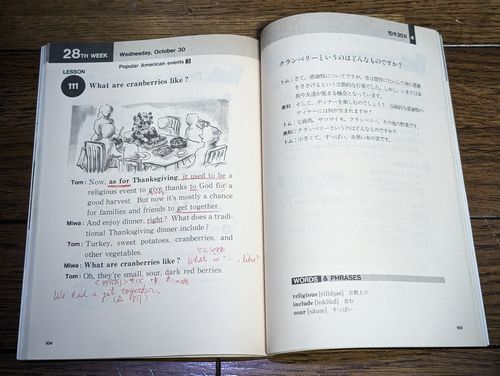 28TH WEEK
Wednesday, October 30
Popular American events ③
LESSON
111
What are cranberries like?
Tom: Now, as for Thanksgiving, it used to be a
religious event to give thanks to God for a
good harvest. But now it's mostly a chance
for families and friends to get together.
Miwa: And enjoy dinner, right? What does a tradi-
tional Thanksgiving dinner include?
Tom: Turkey, sweet potatoes, cranberries, and
other vegetables.
Miwa: What are cranberries like?
What is … like?
Tom: Oh, they're small, sour, dark red berries.
We had a get together.
(名詞)
104
10月30日
クランベリーというのはどんなものですか?
トム:さて、感謝祭についてですが、昔は豊作にたいして神に感謝
をささげるという宗教的な行事でした。しかし、いまでは家
族や友達が集まる機会となっています。
美和:そして、ディナーを楽しむのでしょう? 伝統的な感謝祭の
ディナーには何が含まれますか?
トム:七面鳥、サツマイモ、クランベリー、その他の野菜です。
美和:クランベリーというのはどんなものですか?
トム:小さくて、すっぱい、赤黒い木の実です。
WORDS & PHRASES
religious [rilídʒəs] 宗教上の
include [inklúːd] 含む
sour [sáuər] すっぱい
105